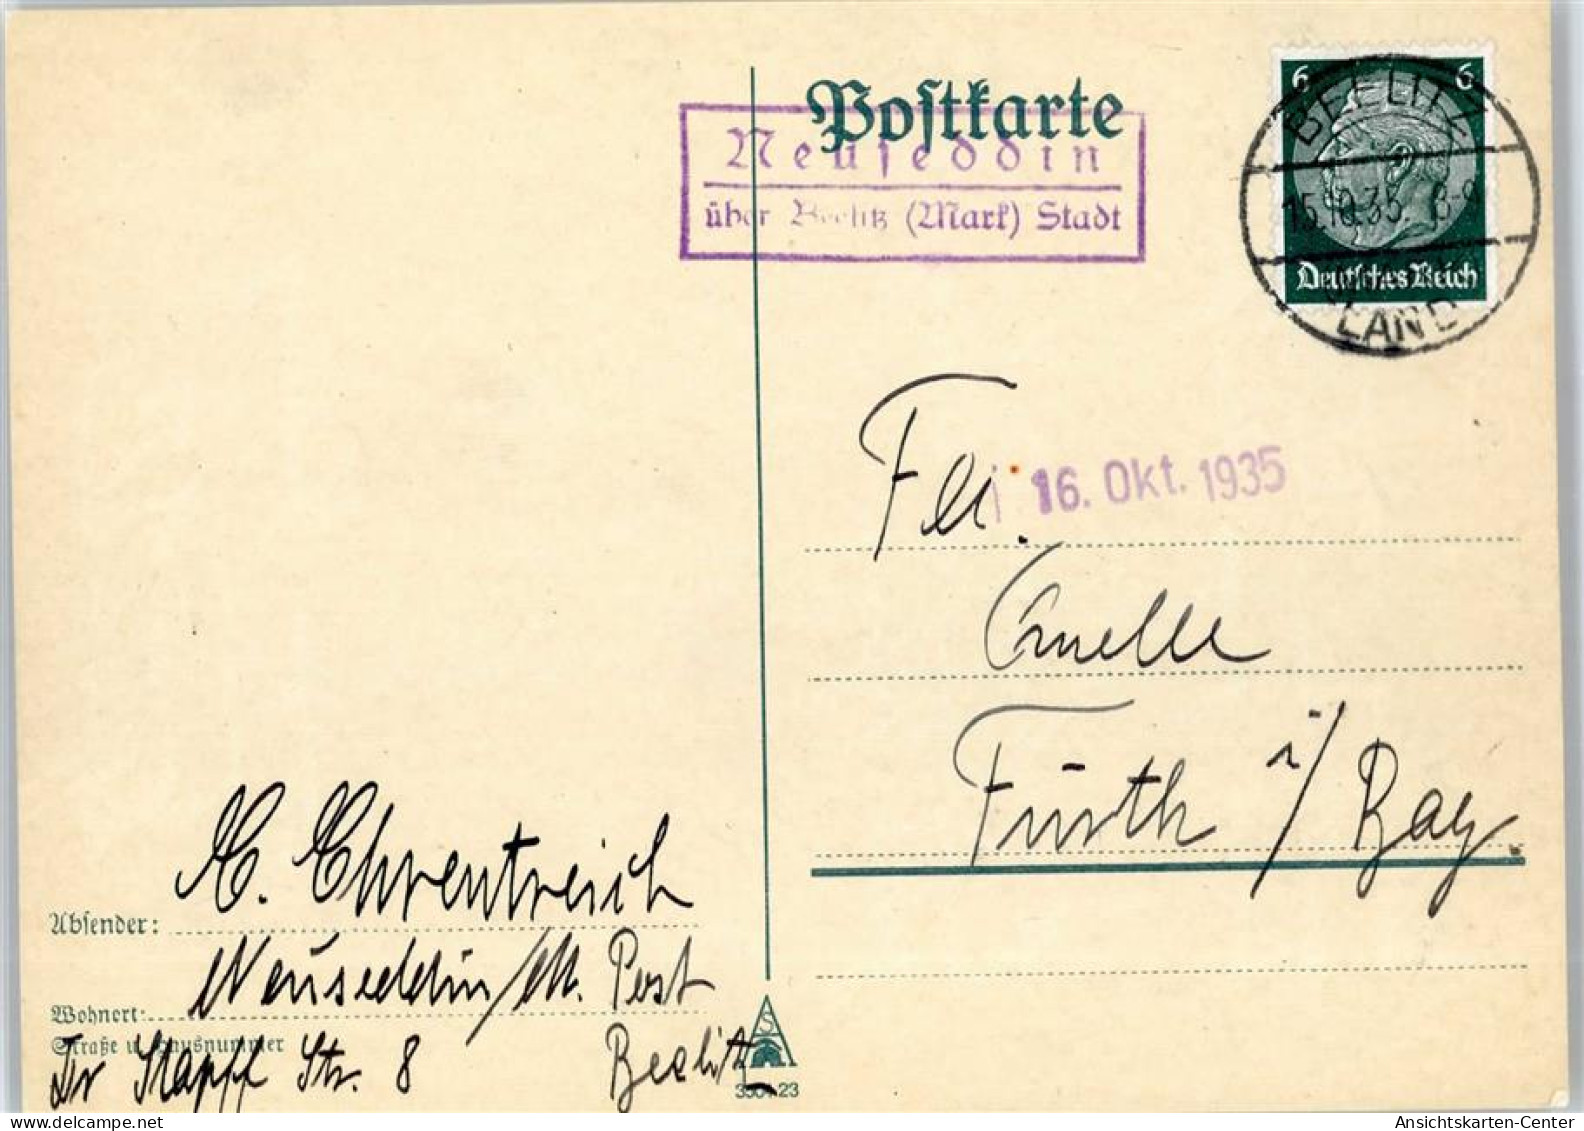 Postkarte
Neuseddin
über Beelitz (Mark) Stadt
6 6
BEELITZ
15.10.35. 8-9
Deutsches Reich
LAND
16. Okt. 1935
Fürth i/Bay.
Absender: Ehrentreich
Wohnort: Neuseddin/M. Post
Straße u. Hausnummer
Dr Stapff Str. 8 Beelitz
Ansichtskarten-Center